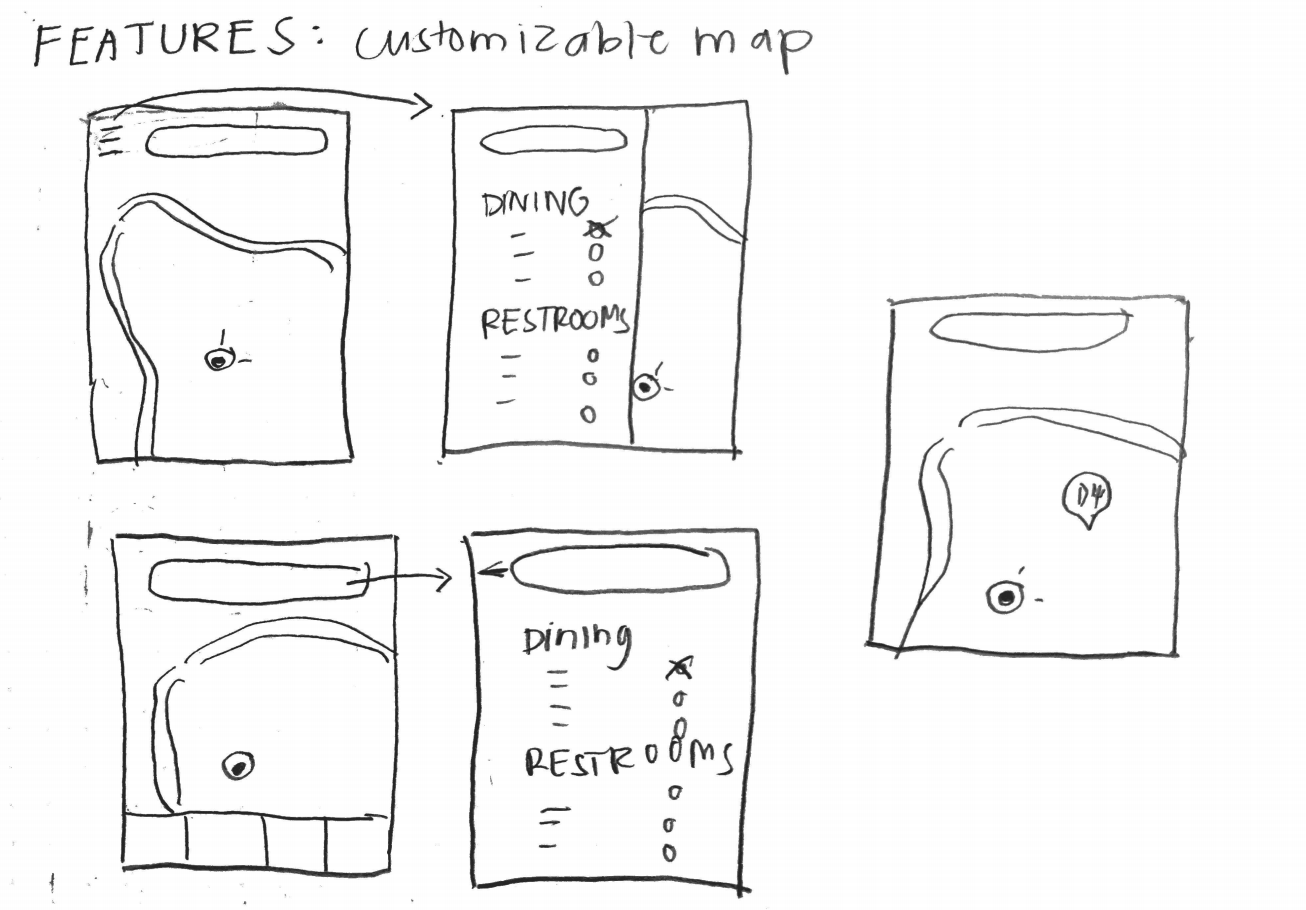 FEATURES: customizable map
DINING
RESTROOMS
Dining
RESTROOMS